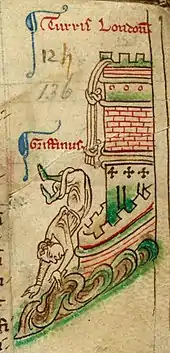 Turris London
1244
136
Griffinus